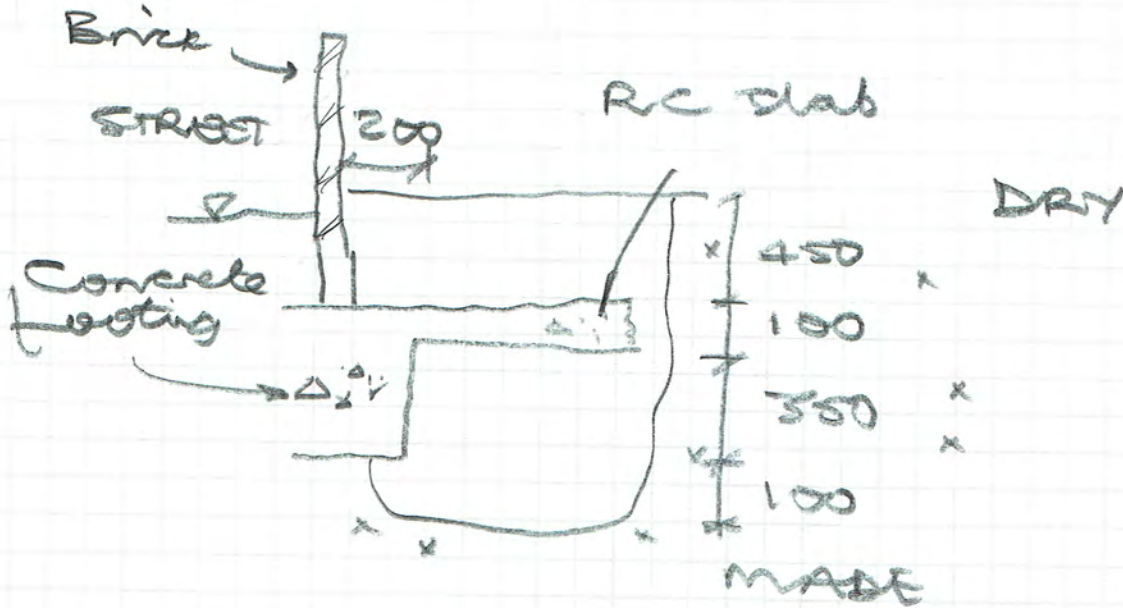 Brick
STREET
200
RC slab
DRY
Concrete
footing
450
100
350
100
MADE